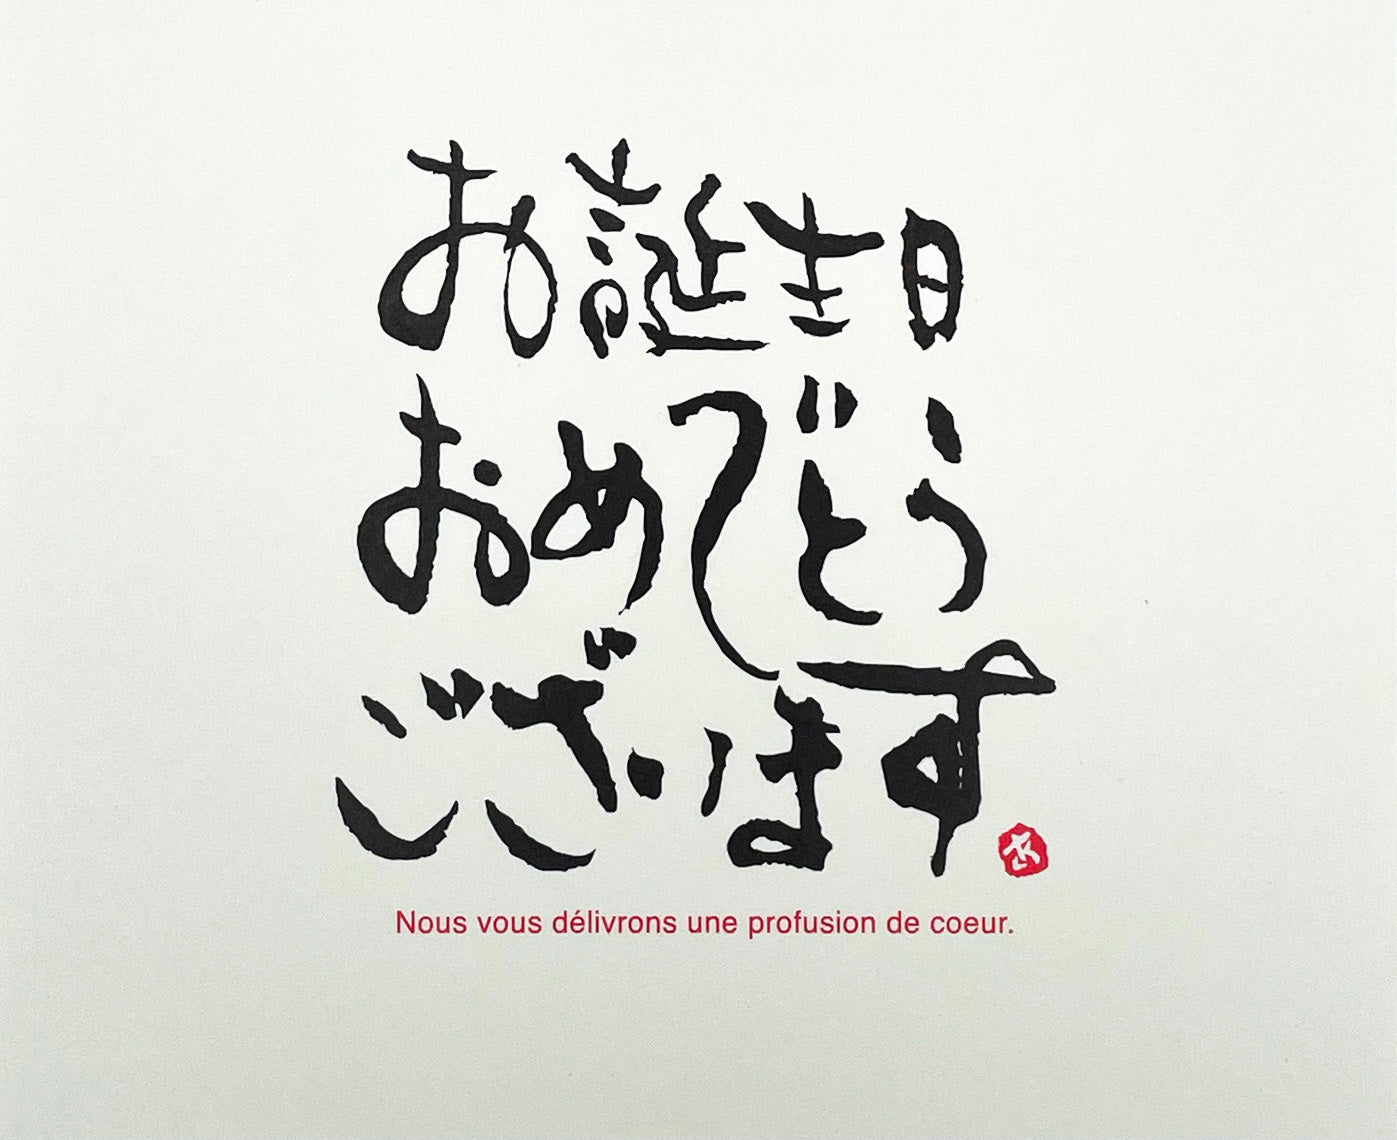 お誕生日
おめでとう
ございます
Nous vous délivrons une profusion de coeur.